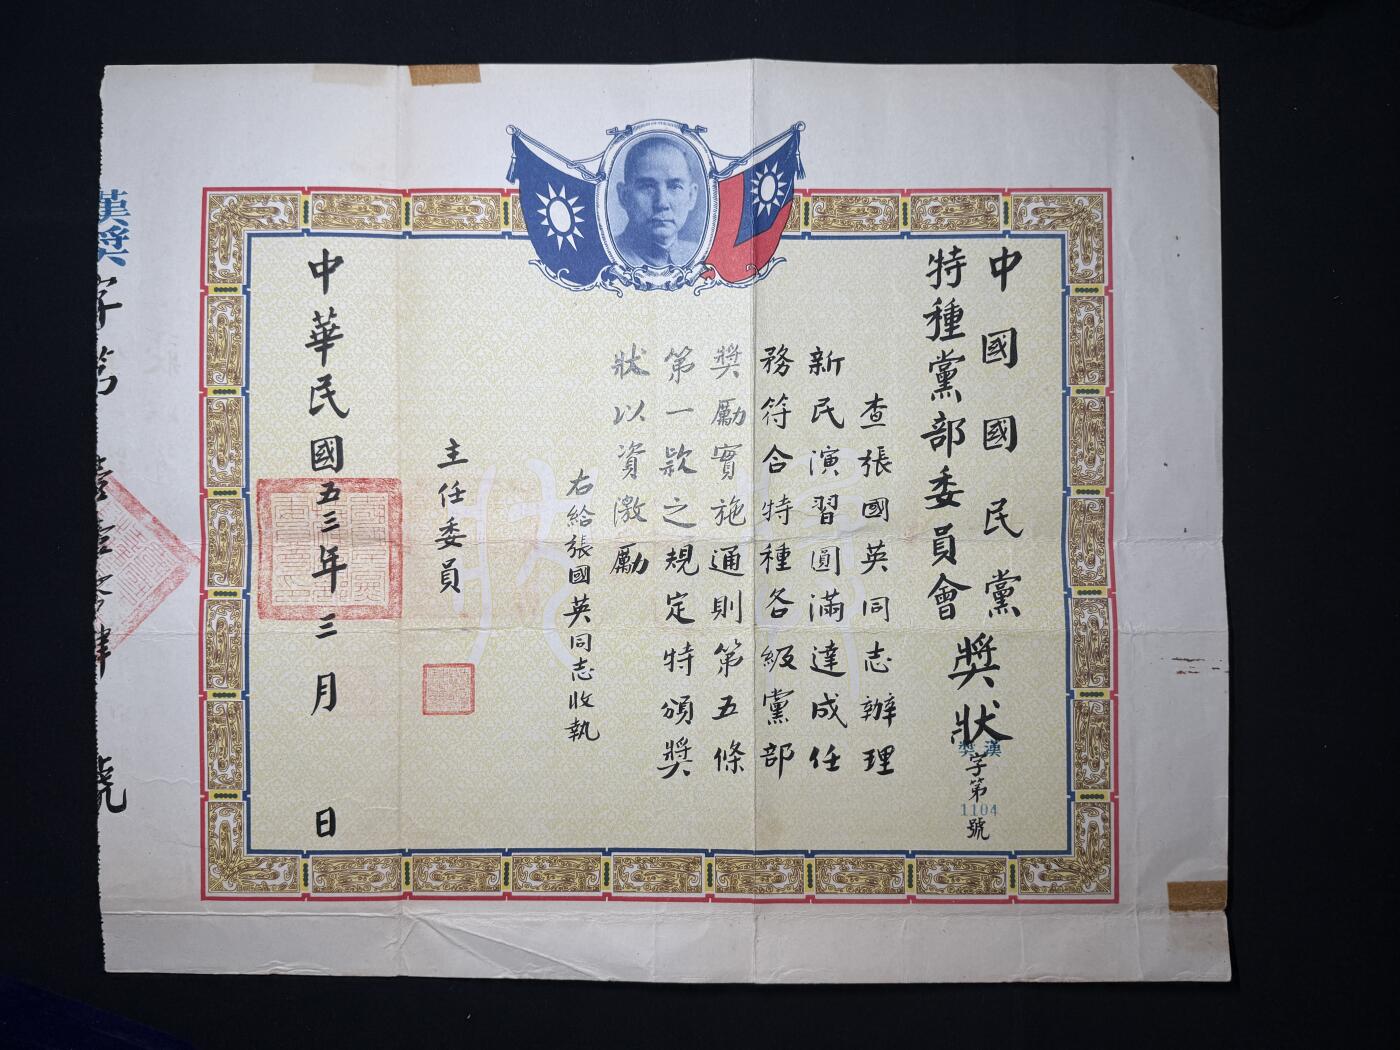 中國國民黨
特種黨部委員會
獎狀
漢獎字第1104號
查張國英同志辦理
新民演習圓滿達成任
務符合特種各級黨部
獎勵實施通則第五條
第一款之規定特頒獎
狀以資激勵
右給張國英同志收執
主任委員
中華民國五三年三月 日
漢獎字第壹壹零肆號